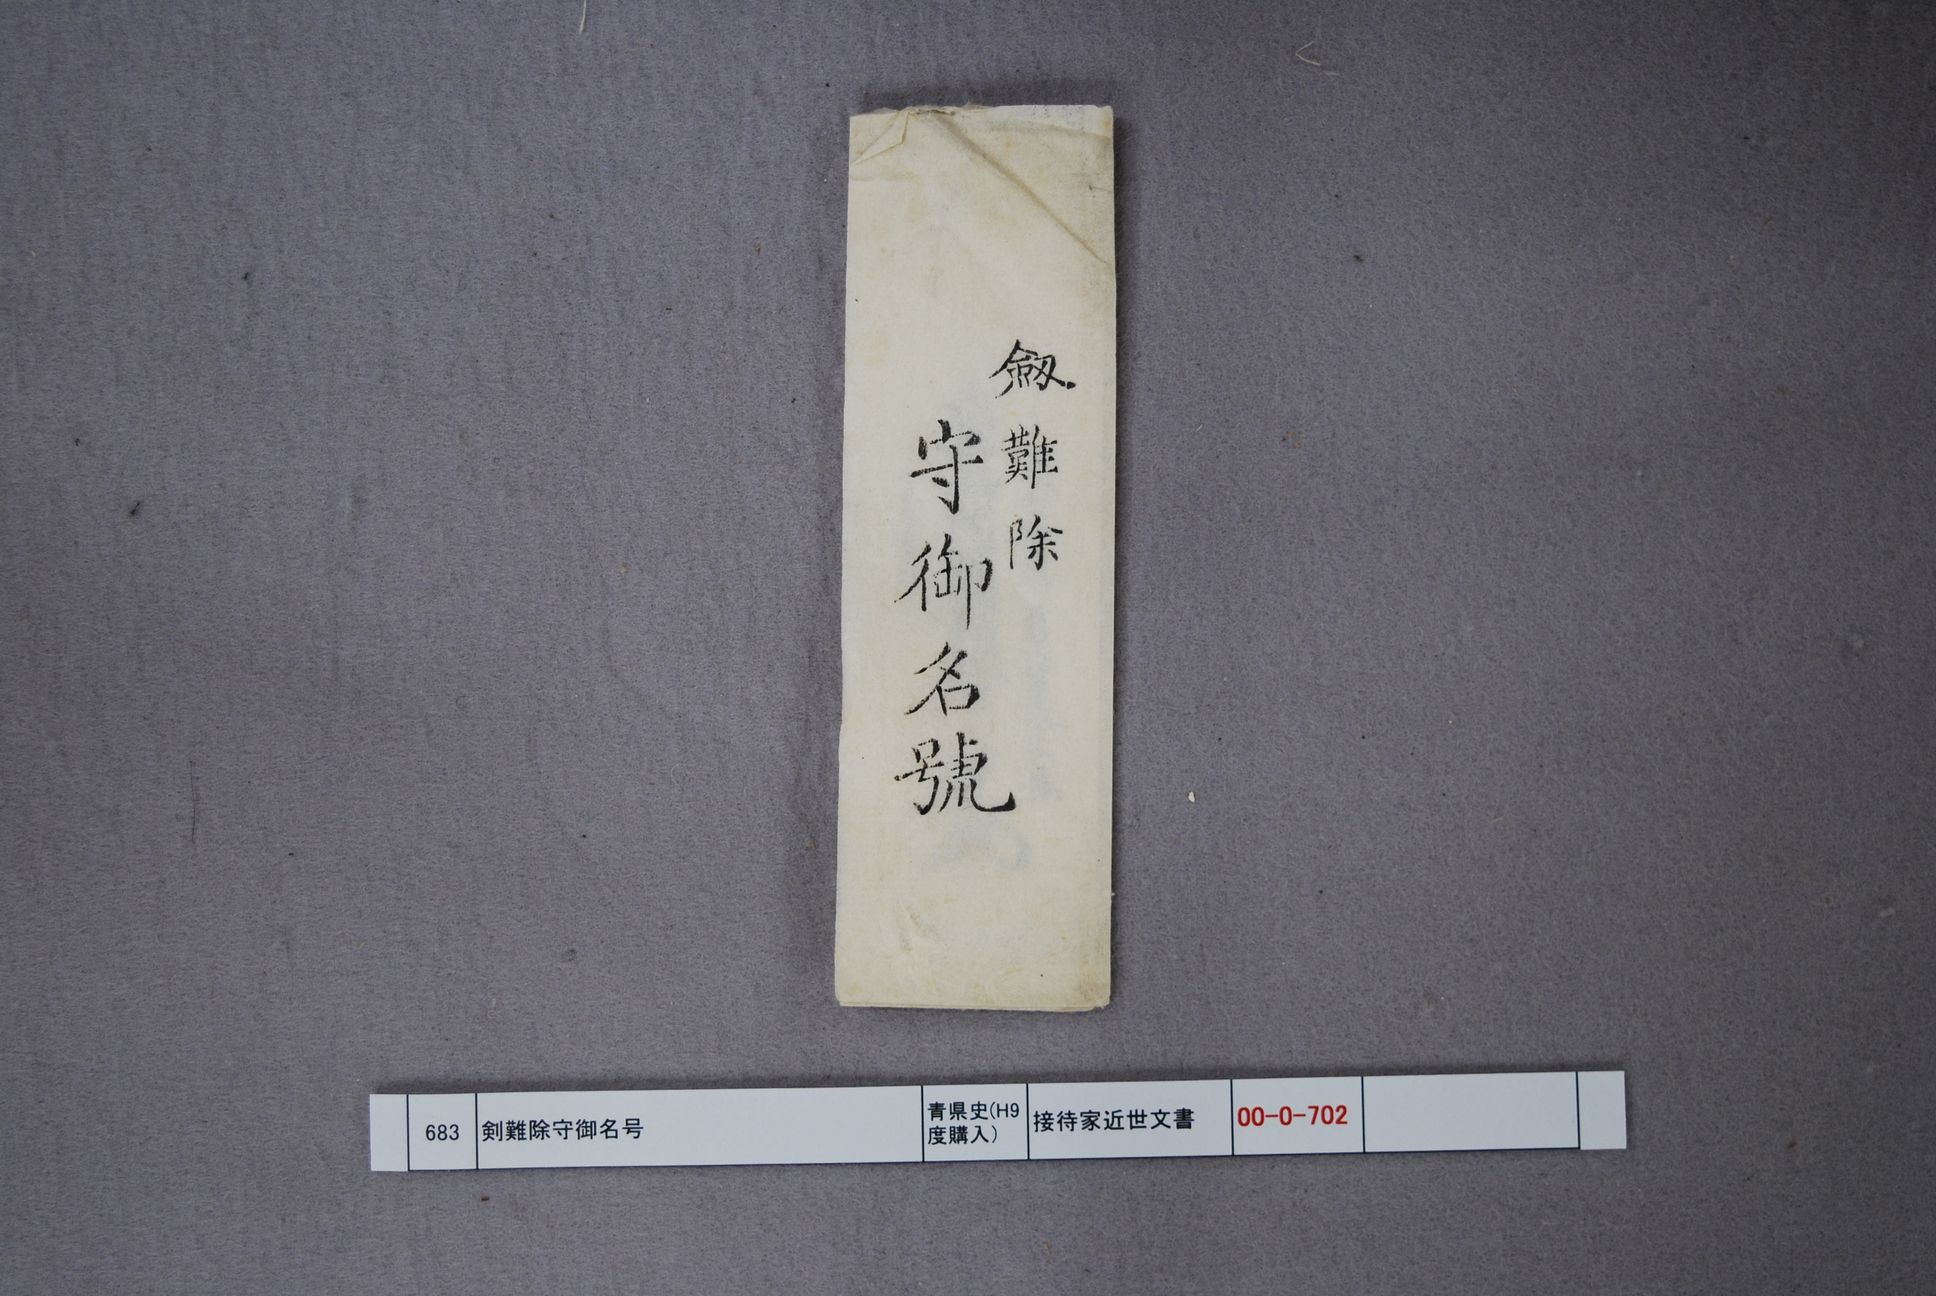 劔難除
守御名號
683
剣難除守御名号
青県史(H9
度購入)
接待家近世文書
00-0-702